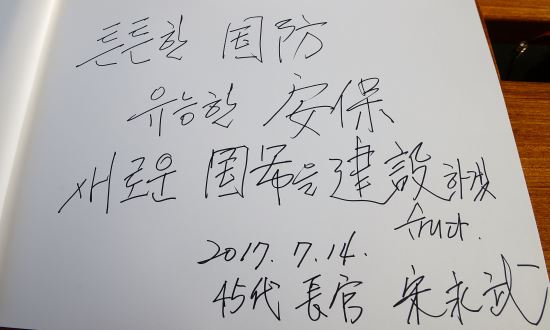 튼튼한 国防
유능한 安保
새로운 国军을 建設하겠
습니다.
2017. 7. 14.
45代 長官 宋永武